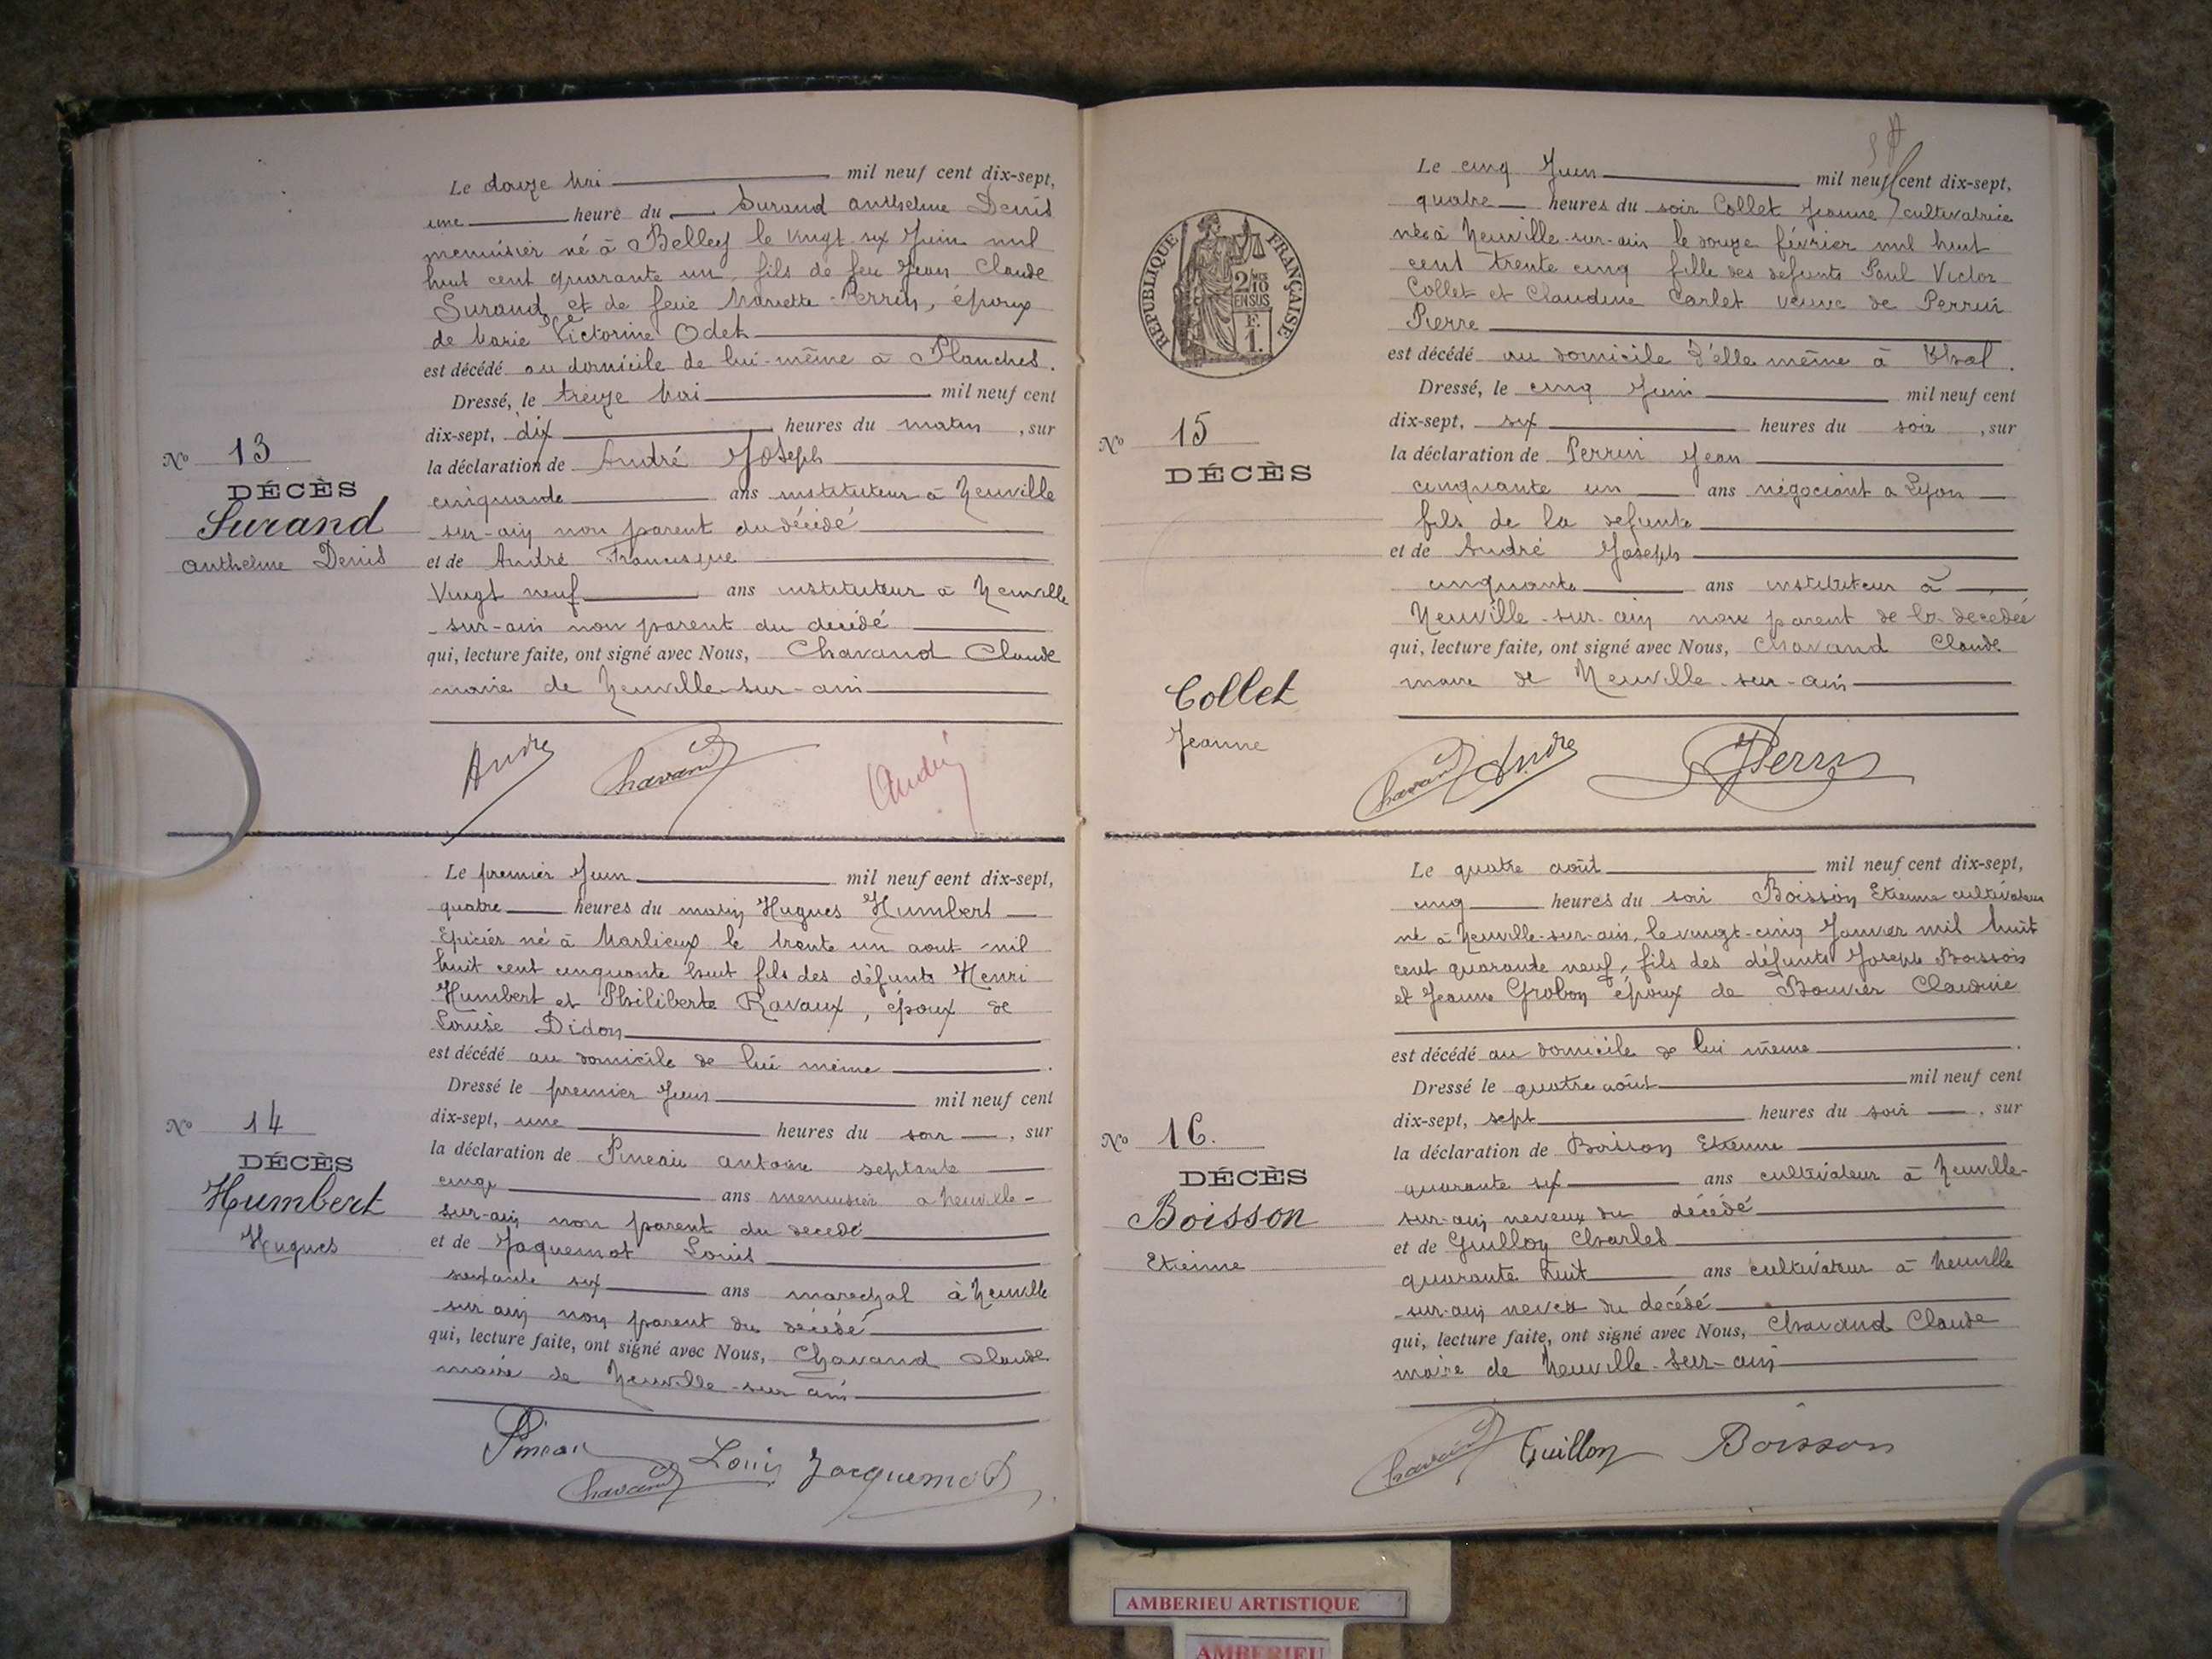 Le douze Mai mil neuf cent dix-sept,
une heure du Surand Anthelme Denis
menuisier né à Belley le vingt six Juin mil
huit cent quarante un, fils de feu Jean Claude
Surand et de feue Mariette Perrin, époux
de Marie Victorine Odet
est décédé au domicile de lui-même à Planches.
Dressé, le treize Mai mil neuf cent
dix-sept, dix heures du matin, sur
la déclaration de André Joseph
cinquante ans instituteur à Neuville
sur-ain non parent du décédé
et de André Francisque
Vingt neuf ans instituteur à Neuville
-sur-ain non parent du décédé
qui, lecture faite, ont signé avec Nous, Chavand Claude
maire de Neuville-sur-ain
No 13
DÉCÈS
Surand
Anthelme Denis
André Chavand André
Le premier Juin mil neuf cent dix-sept,
quatre heures du matin Hugues Humbert
Epicier né à Marlieux le trente un aout mil
huit cent cinquante huit fils des défunts Henri
Humbert et Philiberte Ravaux, époux de
Louise Didon
est décédé au domicile de lui même.
Dressé le premier Juin mil neuf cent
dix-sept, une heures du soir, sur
la déclaration de Pineau antoine septante
cinq ans menuisier à Neuville-
sur-ain non parent du décédé
et de Jaquemot Louis
soixante six ans marechal à Neuville
-sur ain non parent du décédé
qui, lecture faite, ont signé avec Nous, Chavand Claude
maire de Neuville-sur ain
No 14
DÉCÈS
Humbert
Hugues
Pineau Chavand Louis Jacquemot
Le cinq Juin mil neuf cent dix-sept,
quatre heures du soir Collet Jeanne cultivatrice
née à Neuville-sur-ain le douze février mil huit
cent trente cinq fille des defunts Paul Victor
Collet et Claudine Carlet veuve de Perrin
Pierre
est décédé au domicile d'elle même à Thol.
Dressé, le cinq Juin mil neuf cent
dix-sept, six heures du soir, sur
la déclaration de Perrin Jean
cinquante un ans négociant a Lyon
fils de la defunte
et de André Joseph
cinquante ans instituteur à
Neuville-sur-ain non parent de la decedée
qui, lecture faite, ont signé avec Nous, Chavand Claude
maire de Neuville-sur-ain
REPUBLIQUE FRANÇAISE
2/10
EN SUS
F.
1.
No 15
DÉCÈS
Collet
Jeanne
Chavand André Perrin
Le quatre août mil neuf cent dix-sept,
cinq heures du soir Boisson Etienne cultivateur
né à Neuville-sur-ain, le vingt-cinq Janvier mil huit
cent quarante neuf, fils des défunts Joseph Boisson
et Jeanne Grobon époux de Bouvier Claudine
est décédé au domicile de lui même.
Dressé le quatre août mil neuf cent
dix-sept, sept heures du soir, sur
la déclaration de Boisson Etienne
quarante six ans cultivateur à Neuville-
sur-ain neveux du décédé
et de Guillon Charles
quarante huit ans cultivateur à Neuville
-sur-ain neveu du decédé
qui, lecture faite, ont signé avec Nous, Chavand Claude
maire de Neuville-sur-ain
No 16.
DÉCÈS
Boisson
Etienne
Chavand Guillon Boisson
AMBERIEU ARTISTIQUE
AMBERIEU